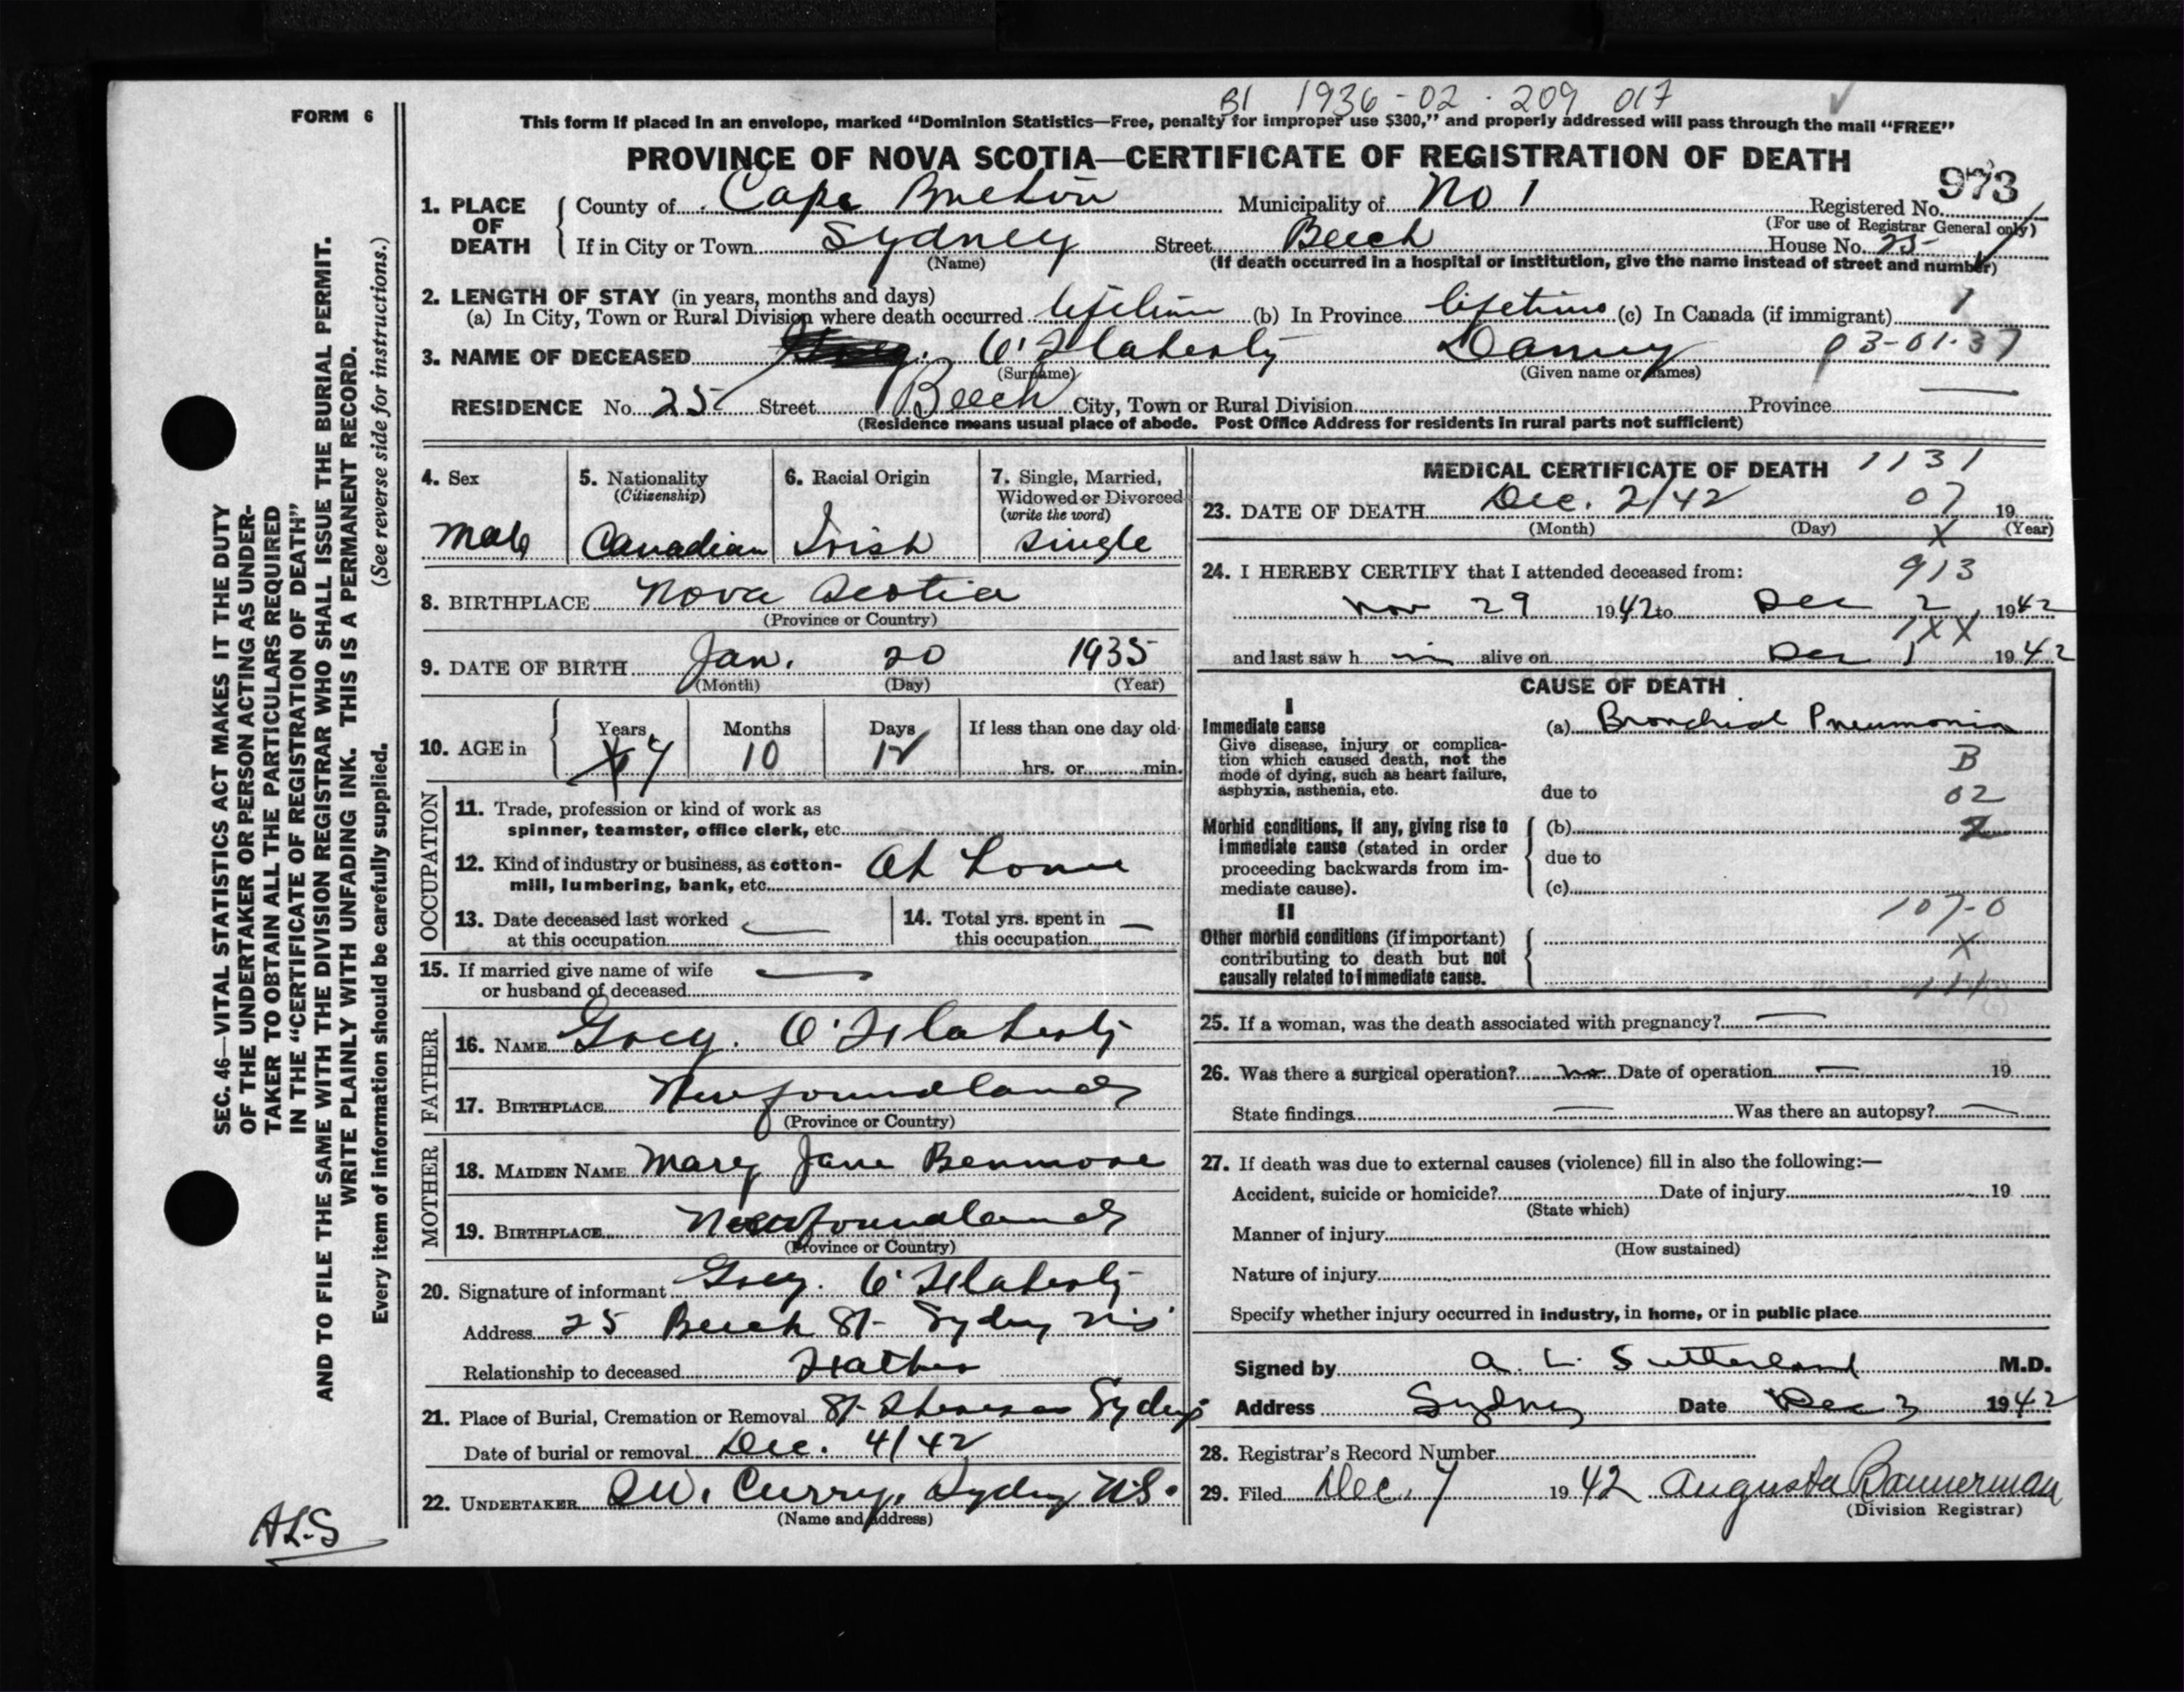 B1 1936-02-209 017
FORM 6
This form if placed in an envelope, marked "Dominion Statistics—Free, penalty for improper use $300," and properly addressed will pass through the mail "FREE"
PROVINCE OF NOVA SCOTIA—CERTIFICATE OF REGISTRATION OF DEATH
973
1. PLACE OF DEATH
County of Cape Breton Municipality of No 1 Registered No.
(For use of Registrar General only)
If in City or Town Sydney Street Beech House No. 25
(Name) (If death occurred in a hospital or institution, give the name instead of street and number)
2. LENGTH OF STAY (in years, months and days)
(a) In City, Town or Rural Division where death occurred lifetime (b) In Province lifetime (c) In Canada (if immigrant) 1
3. NAME OF DECEASED O'Flaherty Danny 03-01-37
(Surname) (Given name or names)
RESIDENCE No. 25 Street Beech City, Town or Rural Division Province
(Residence means usual place of abode. Post Office Address for residents in rural parts not sufficient)
4. Sex
Male
5. Nationality
(Citizenship)
Canadian
6. Racial Origin
Irish
7. Single, Married,
Widowed or Divorced
(write the word)
Single
8. BIRTHPLACE Nova Scotia
(Province or Country)
9. DATE OF BIRTH Jan. 20 1935
(Month) (Day) (Year)
10. AGE in
Years Months Days If less than one day old
7 10 12 hrs. or min.
OCCUPATION
11. Trade, profession or kind of work as
spinner, teamster, office clerk, etc.
12. Kind of industry or business, as cotton-
mill, lumbering, bank, etc. At home
13. Date deceased last worked
at this occupation
14. Total yrs. spent in
this occupation
15. If married give name of wife
or husband of deceased
FATHER
16. NAME Greg. O'Flaherty
17. BIRTHPLACE Newfoundland
(Province or Country)
MOTHER
18. MAIDEN NAME Mary Jane Benmore
19. BIRTHPLACE Newfoundland
(Province or Country)
20. Signature of informant Greg. O'Flaherty
Address 25 Beech St Sydney NS
Relationship to deceased Father
21. Place of Burial, Cremation or Removal St Theresas Sydney
Date of burial or removal Dec. 4/42
22. UNDERTAKER Curry, Sydney N.S.
(Name and address)
MEDICAL CERTIFICATE OF DEATH 1131
23. DATE OF DEATH Dec. 2/42 07 19
(Month) (Day) X (Year)
24. I HEREBY CERTIFY that I attended deceased from: 913
Nov 29 1942 to Dec 2, 1942
1XX
and last saw h im alive on Dec 1 1942
CAUSE OF DEATH
I
Immediate cause
Give disease, injury or complica-
tion which caused death, not the
mode of dying, such as heart failure,
asphyxia, asthenia, etc.
(a) Bronchial Pneumonia
B
due to 02
Morbid conditions, if any, giving rise to
immediate cause (stated in order
proceeding backwards from im-
mediate cause).
(b)
due to
(c)
107-0
II
Other morbid conditions (if important)
contributing to death but not
causally related to immediate cause.
X
25. If a woman, was the death associated with pregnancy?
26. Was there a surgical operation? no Date of operation 19
State findings Was there an autopsy?
27. If death was due to external causes (violence) fill in also the following:—
Accident, suicide or homicide? Date of injury 19
(State which)
Manner of injury
(How sustained)
Nature of injury
Specify whether injury occurred in industry, in home, or in public place
Signed by A. L. Sutherland M.D.
Address Sydney Date Dec 3 1942
28. Registrar's Record Number
29. Filed Dec. 7 1942 Augusta Bannerman
(Division Registrar)
SEC. 46—VITAL STATISTICS ACT MAKES IT THE DUTY
OF THE UNDERTAKER OR PERSON ACTING AS UNDER-
TAKER TO OBTAIN ALL THE PARTICULARS REQUIRED
IN THE "CERTIFICATE OF REGISTRATION OF DEATH"
AND TO FILE THE SAME WITH THE DIVISION REGISTRAR WHO SHALL ISSUE THE BURIAL PERMIT.
WRITE PLAINLY WITH UNFADING INK. THIS IS A PERMANENT RECORD.
Every item of information should be carefully supplied. (See reverse side for instructions.)
ALS